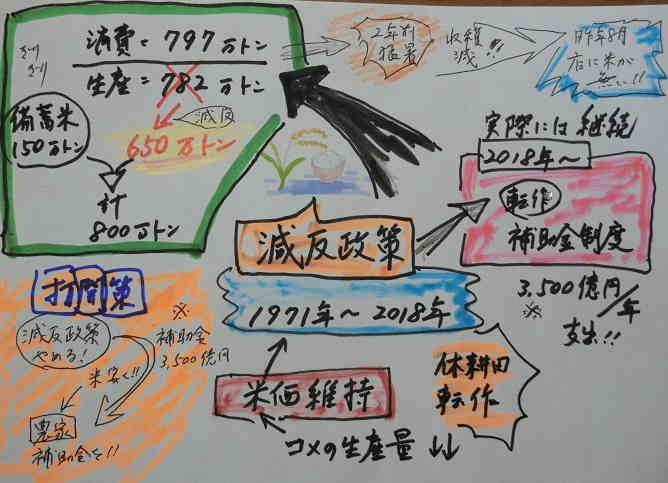 ぎり
ぎり
消費=797万トン
生産=782万トン
減反
650万トン
備蓄米
150万トン
計
800万トン
2年前
猛暑
収穫
減!!
昨年8月
店に米が
無い!!
減反政策
1971年～2018年
米価維持
コメの生産量↓↓
休耕田
転作
実際には継続
2018年～
転作
補助金制度
3,500億円/年
※
支出!!
打開策
減反政策
やめる!
※
補助金
3,500億円
米安く!!
農家
補助金を!!